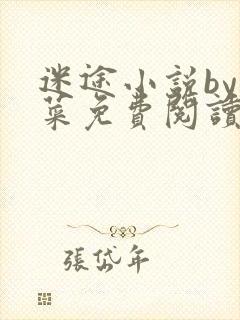 迷途小説by
菜免費閱讀
張岱年